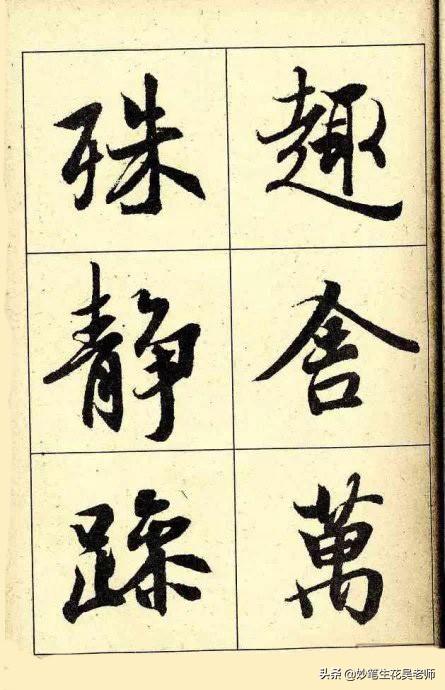 趣舍萬
殊静躁
头条 @妙笔生花吴老师